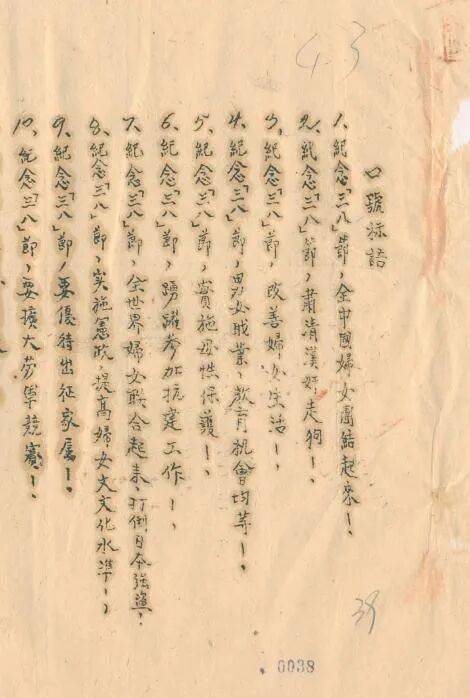 43
口號标語
1、紀念「三八」節，全中國婦女團結起來！、
2、紀念「三八」節，肅清漢奸走狗！、
3、紀念「三八」節，改善婦女生活！、
4、紀念「三八」節，男女職業，教育机會均等！、
5、紀念「三八」節，實施母性保護！、
6、紀念「三八」節，踴躍参加抗建工作！、
7、紀念「三八」節，全世界婦女联合起来，打倒日本強盜，
8、紀念「三八」節，实施憲政，提高婦女文文化水準！、
9、紀念「三八」節，要優待出征家屬！、
10、紀念「三八」節，要擴大劳军競賽！、
39
0038